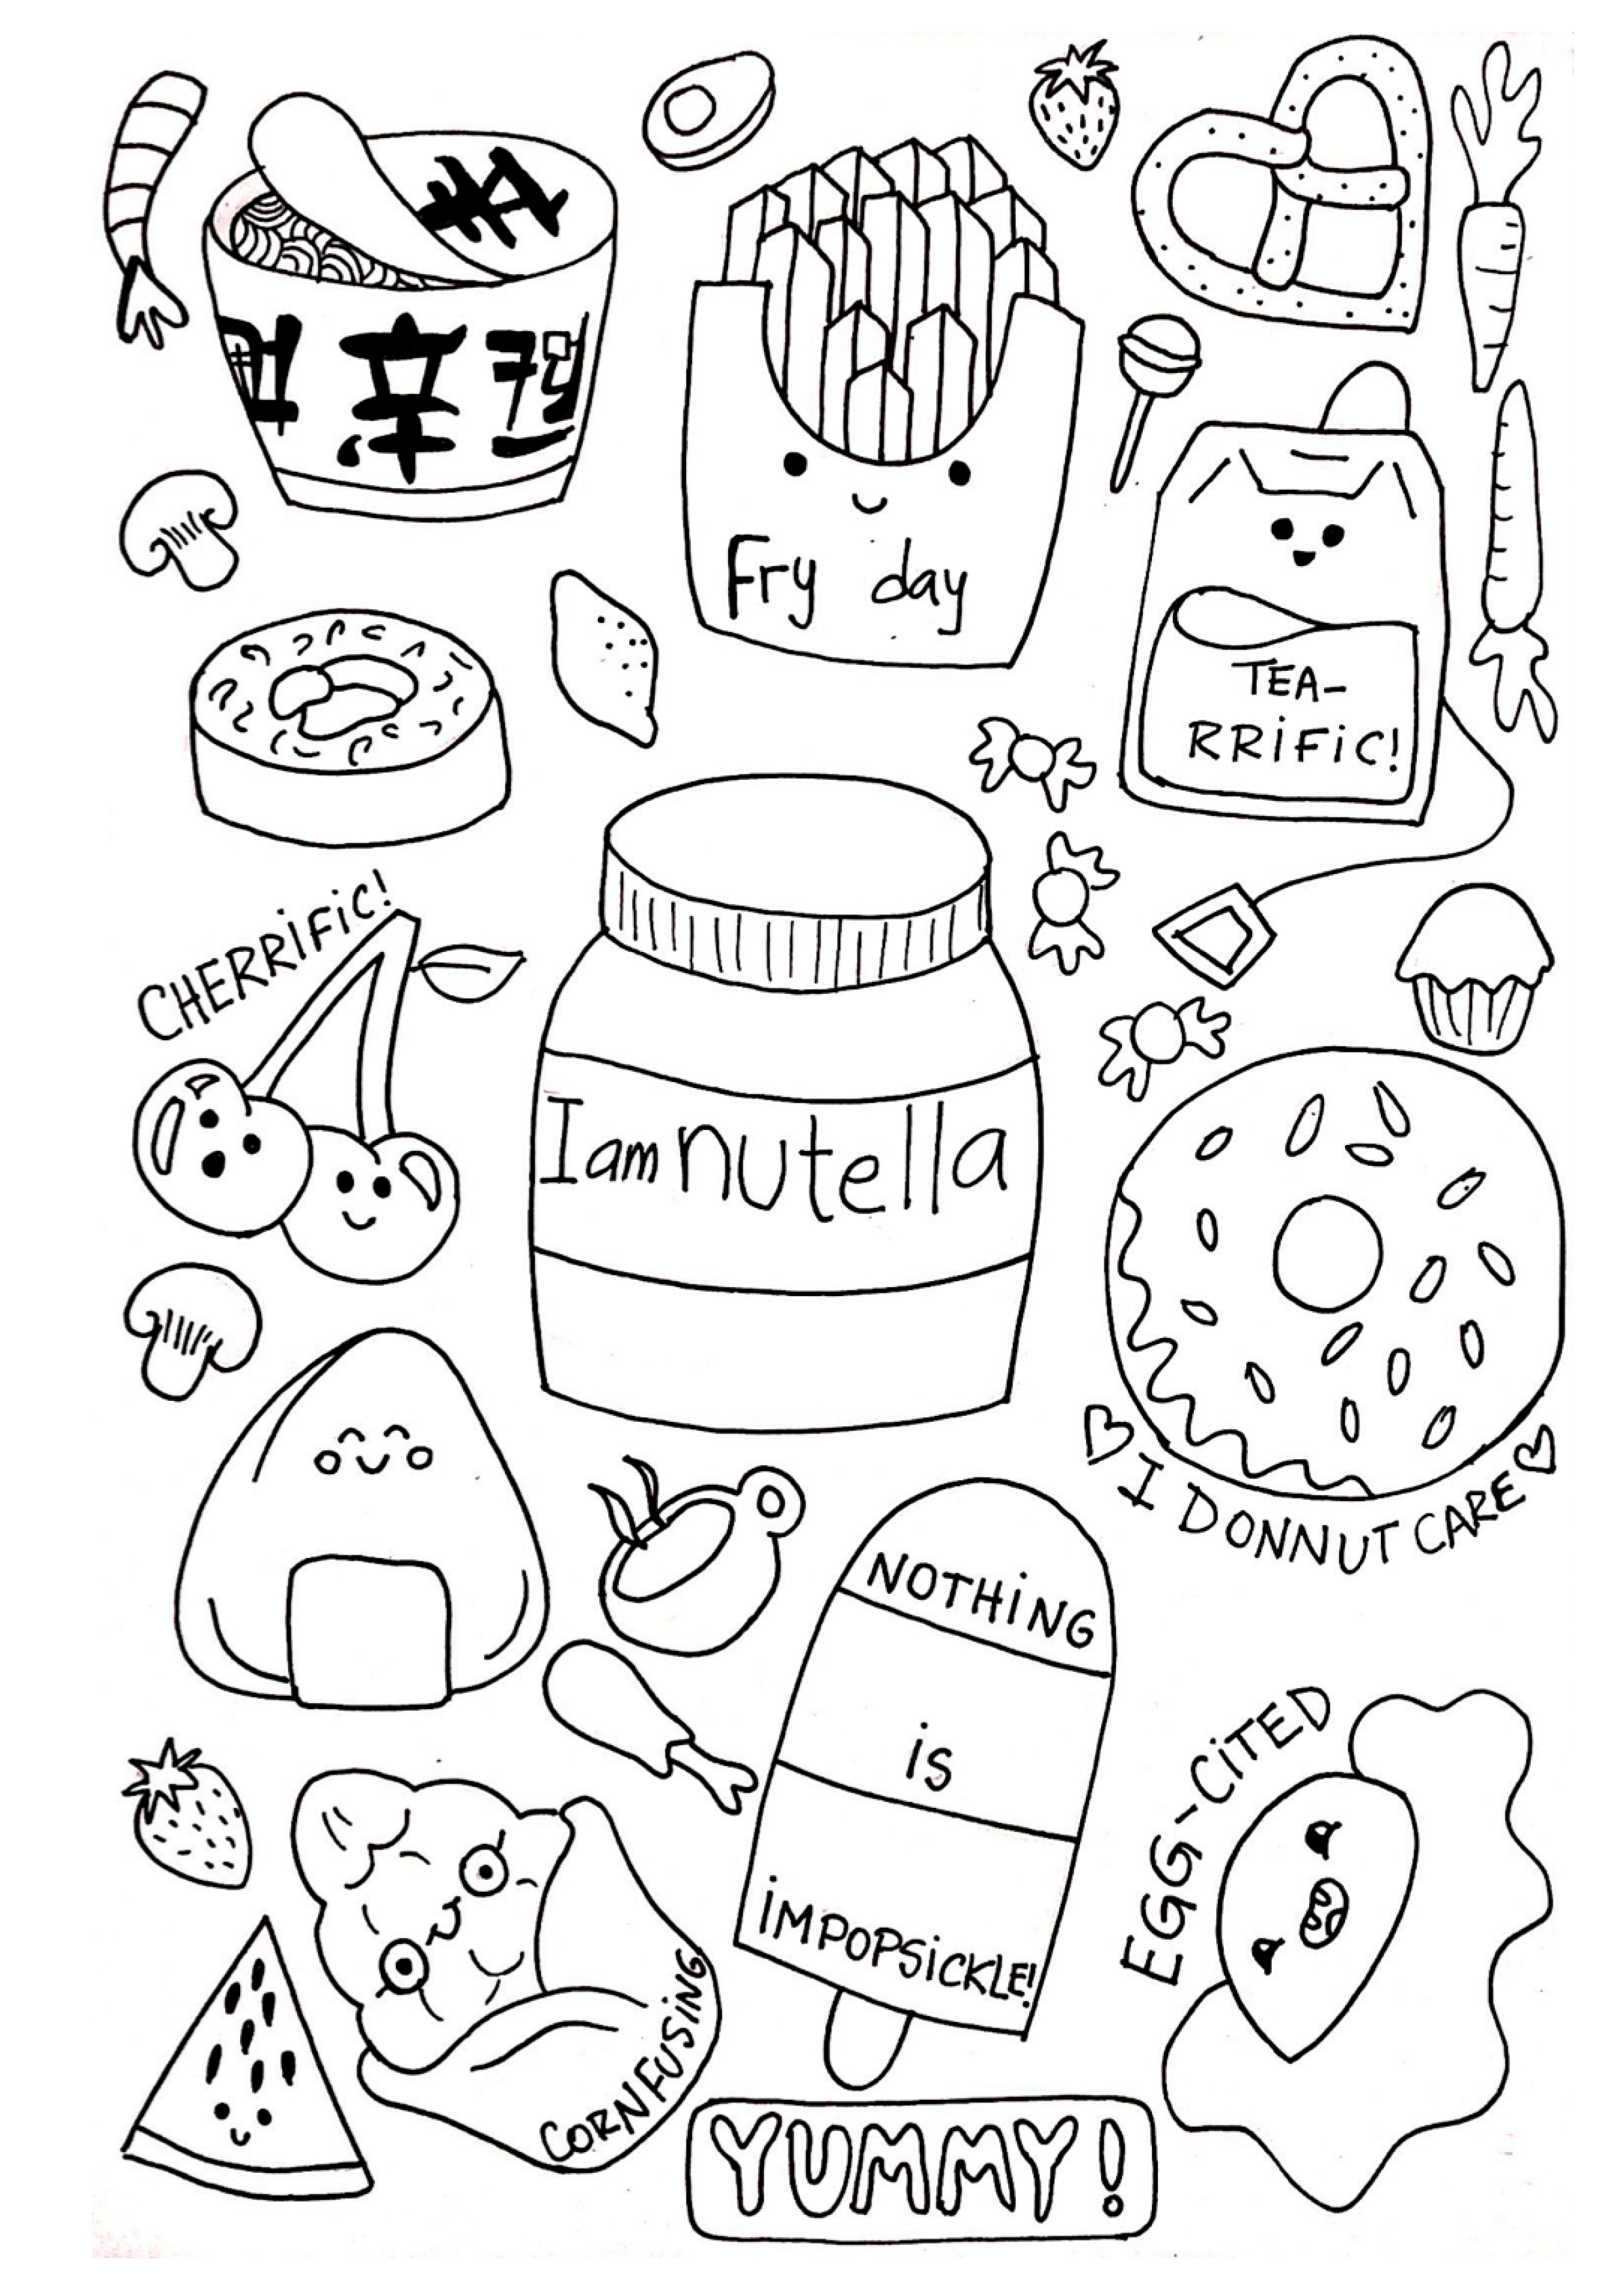 辛
Fry day
TEA-
RRiFiC!
CHERRiFiC!
I am nutella
I DONNUT CARE
NOTHiNG
is
iMPOPSiCKLE!
EGG-CiTED
CORNFUSiNG
YUMMY!